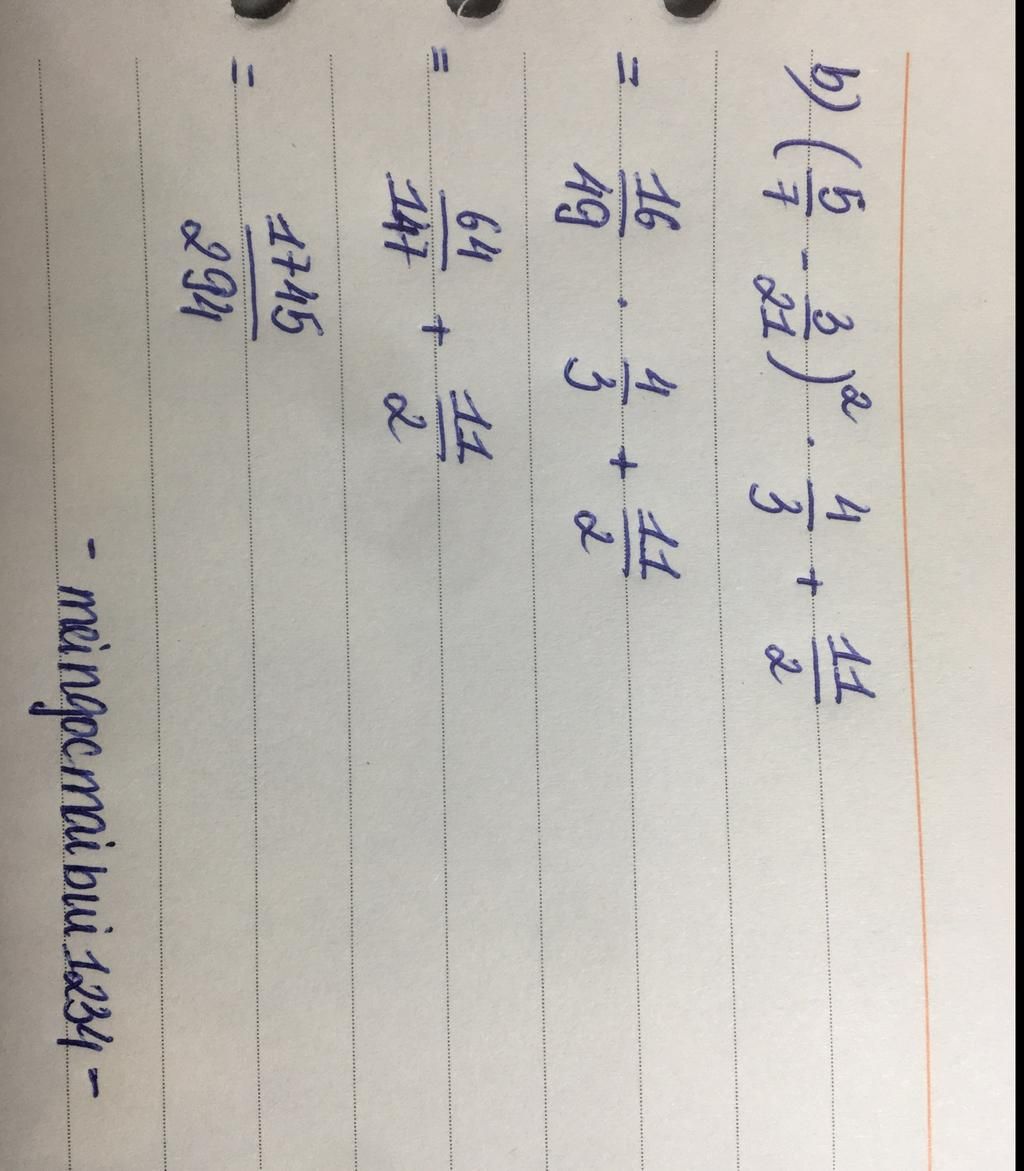 b) (5/7 - 3/21)² . 4/3 + 11/2
= 16/49 . 4/3 + 11/2
= 64/147 + 11/2
= 1745/294
- meingocmaibui1234 -